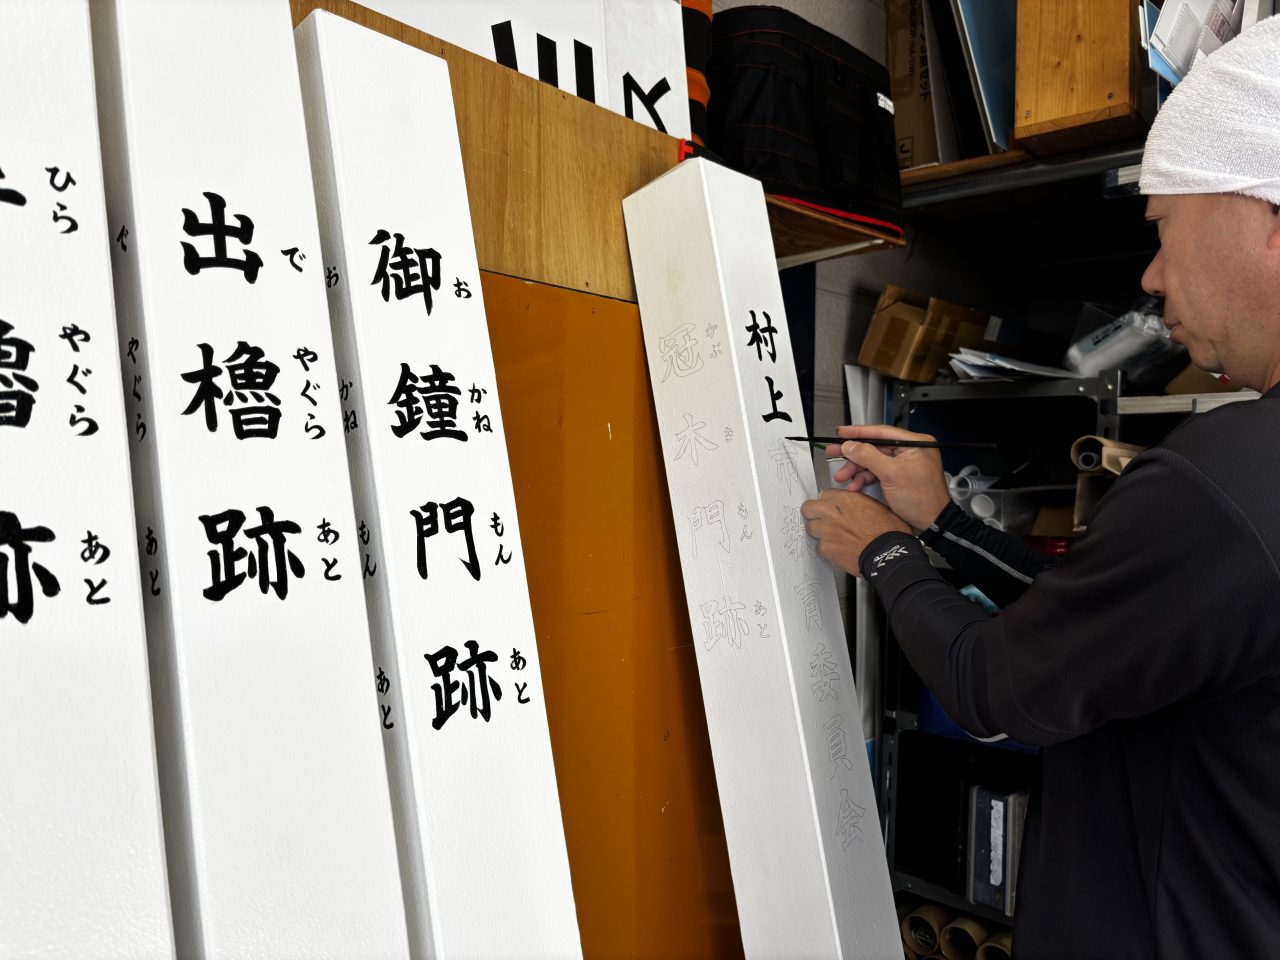 村上市教育委員会
冠木門跡
かぶ
き
もん
あと
御鐘門跡
お
かね
もん
あと
お
かね
もん
あと
出櫓跡
で
やぐら
あと
で
やぐら
あと
櫓跡
ひら
やぐら
あと